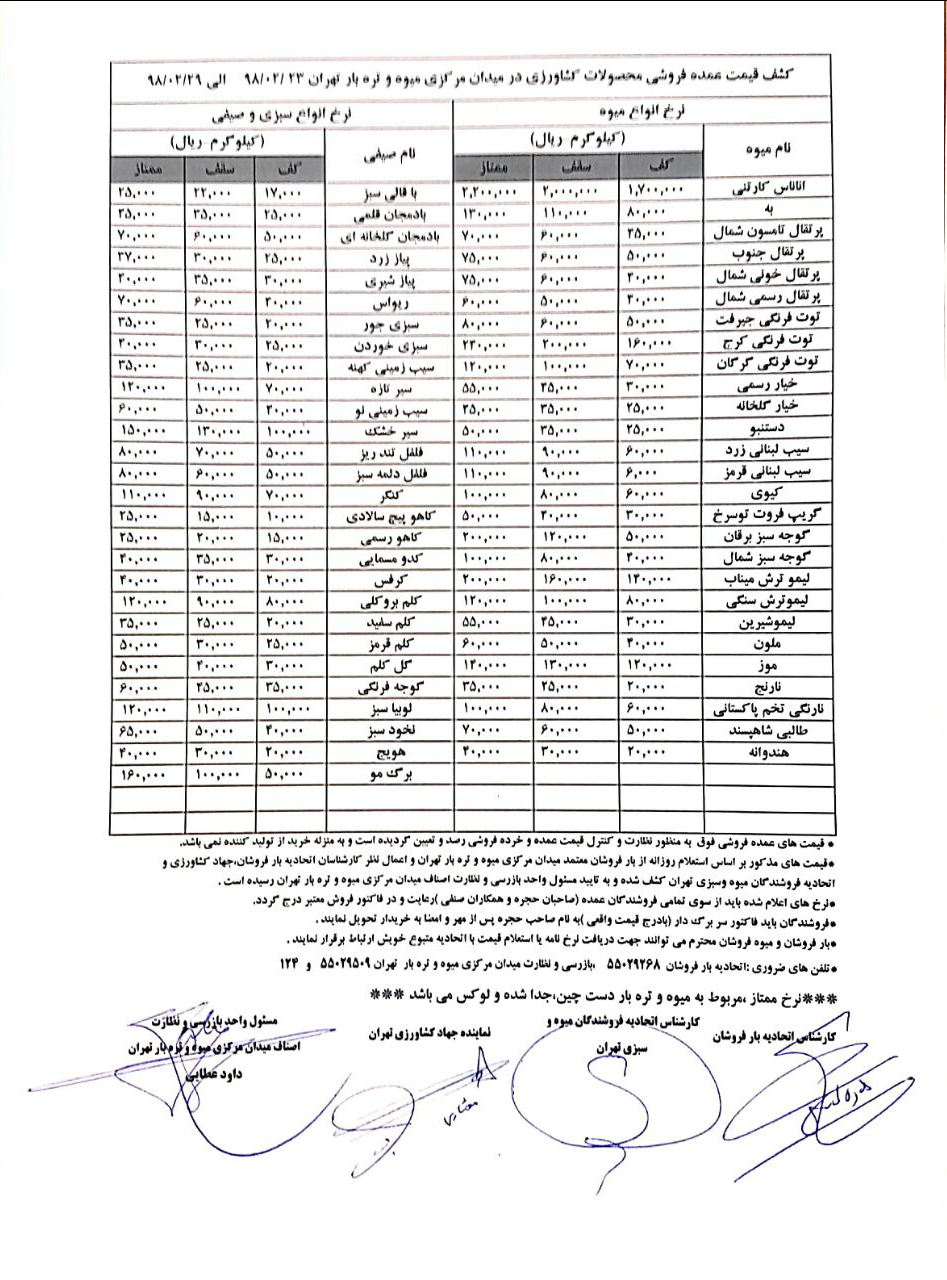 کشف قیمت عمده فروشی محصولات کشاورزی در میدان مرکزی میوه و تره بار تهران ۹۸/۰۲/۲۳ الی ۹۸/۰۲/۲۹
نرخ انواع میوه نرخ انواع سبزی و صیفی
نام میوه (کیلوگرم-ریال) نام صیفی (کیلوگرم-ریال)
کف سقف ممتاز کف سقف ممتاز
آناناس کارتنی ۱,۷۰۰,۰۰۰ ۲,۰۰۰,۰۰۰ ۲,۲۰۰,۰۰۰ باقالی سبز ۱۷,۰۰۰ ۲۲,۰۰۰ ۲۵,۰۰۰
به ۸۰,۰۰۰ ۱۱۰,۰۰۰ ۱۳۰,۰۰۰ بادمجان قلمی ۲۵,۰۰۰ ۳۵,۰۰۰ ۴۵,۰۰۰
پرتقال تامسون شمال ۴۵,۰۰۰ ۶۰,۰۰۰ ۷۰,۰۰۰ بادمجان گلخانه ای ۵۰,۰۰۰ ۶۰,۰۰۰ ۷۰,۰۰۰
پرتقال جنوب ۵۰,۰۰۰ ۶۰,۰۰۰ ۷۵,۰۰۰ پیاز زرد ۲۵,۰۰۰ ۳۰,۰۰۰ ۳۷,۰۰۰
پرتقال خونی شمال ۴۰,۰۰۰ ۶۰,۰۰۰ ۷۵,۰۰۰ پیاز شیری ۳۰,۰۰۰ ۳۵,۰۰۰ ۴۰,۰۰۰
پرتقال رسمی شمال ۴۰,۰۰۰ ۵۰,۰۰۰ ۶۰,۰۰۰ ریواس ۴۰,۰۰۰ ۶۰,۰۰۰ ۷۰,۰۰۰
توت فرنگی جیرفت ۵۰,۰۰۰ ۶۰,۰۰۰ ۸۰,۰۰۰ سبزی جور ۲۰,۰۰۰ ۲۵,۰۰۰ ۳۵,۰۰۰
توت فرنگی کرج ۱۶۰,۰۰۰ ۲۰۰,۰۰۰ ۲۴۰,۰۰۰ سبزی خوردن ۲۵,۰۰۰ ۳۰,۰۰۰ ۴۰,۰۰۰
توت فرنگی گرگان ۷۰,۰۰۰ ۱۰۰,۰۰۰ ۱۲۰,۰۰۰ سیب زمینی کهنه ۲۰,۰۰۰ ۲۵,۰۰۰ ۳۵,۰۰۰
خیار رسمی ۳۰,۰۰۰ ۴۵,۰۰۰ ۵۵,۰۰۰ سیر تازه ۷۰,۰۰۰ ۱۰۰,۰۰۰ ۱۲۰,۰۰۰
خیار گلخانه ۲۵,۰۰۰ ۳۵,۰۰۰ ۴۵,۰۰۰ سیب زمینی نو ۴۰,۰۰۰ ۵۰,۰۰۰ ۶۰,۰۰۰
دستنبو ۲۵,۰۰۰ ۳۵,۰۰۰ ۵۰,۰۰۰ سیر خشک ۱۰۰,۰۰۰ ۱۳۰,۰۰۰ ۱۵۰,۰۰۰
سیب لبنانی زرد ۶۰,۰۰۰ ۹۰,۰۰۰ ۱۱۰,۰۰۰ فلفل تند ریز ۵۰,۰۰۰ ۷۰,۰۰۰ ۸۰,۰۰۰
سیب لبنانی قرمز ۶,۰۰۰ ۹۰,۰۰۰ ۱۱۰,۰۰۰ فلفل دلمه سبز ۵۰,۰۰۰ ۶۰,۰۰۰ ۸۰,۰۰۰
کیوی ۶۰,۰۰۰ ۸۰,۰۰۰ ۱۰۰,۰۰۰ کنگر ۷۰,۰۰۰ ۹۰,۰۰۰ ۱۱۰,۰۰۰
گریپ فروت توسرخ ۳۰,۰۰۰ ۴۰,۰۰۰ ۵۰,۰۰۰ کاهو پیچ سالادی ۱۰,۰۰۰ ۱۵,۰۰۰ ۲۵,۰۰۰
گوجه سبز برقان ۵۰,۰۰۰ ۱۲۰,۰۰۰ ۲۰۰,۰۰۰ کاهو رسمی ۱۵,۰۰۰ ۲۰,۰۰۰ ۲۵,۰۰۰
گوجه سبز شمال ۴۰,۰۰۰ ۸۰,۰۰۰ ۱۰۰,۰۰۰ کدو مسمایی ۳۰,۰۰۰ ۳۵,۰۰۰ ۴۰,۰۰۰
لیمو ترش میناب ۱۴۰,۰۰۰ ۱۶۰,۰۰۰ ۲۰۰,۰۰۰ کرفس ۲۰,۰۰۰ ۳۰,۰۰۰ ۴۰,۰۰۰
لیموترش سنگی ۸۰,۰۰۰ ۱۰۰,۰۰۰ ۱۲۰,۰۰۰ کلم بروکلی ۸۰,۰۰۰ ۹۰,۰۰۰ ۱۲۰,۰۰۰
لیموشیرین ۳۰,۰۰۰ ۴۵,۰۰۰ ۵۵,۰۰۰ کلم سفید ۲۰,۰۰۰ ۲۵,۰۰۰ ۳۵,۰۰۰
ملون ۴۰,۰۰۰ ۵۰,۰۰۰ ۶۰,۰۰۰ کلم قرمز ۲۵,۰۰۰ ۳۰,۰۰۰ ۵۰,۰۰۰
موز ۱۲۰,۰۰۰ ۱۳۰,۰۰۰ ۱۴۰,۰۰۰ گل کلم ۳۰,۰۰۰ ۴۰,۰۰۰ ۵۰,۰۰۰
نارنج ۲۰,۰۰۰ ۲۵,۰۰۰ ۳۵,۰۰۰ گوجه فرنگی ۳۵,۰۰۰ ۴۵,۰۰۰ ۶۰,۰۰۰
نارنگی تخم پاکستانی ۶۰,۰۰۰ ۸۰,۰۰۰ ۱۰۰,۰۰۰ لوبیا سبز ۱۰۰,۰۰۰ ۱۱۰,۰۰۰ ۱۲۰,۰۰۰
طالبی شاهپسند ۵۰,۰۰۰ ۶۰,۰۰۰ ۷۰,۰۰۰ نخود سبز ۴۰,۰۰۰ ۵۰,۰۰۰ ۶۵,۰۰۰
هندوانه ۲۰,۰۰۰ ۳۰,۰۰۰ ۴۰,۰۰۰ هویج ۲۰,۰۰۰ ۳۰,۰۰۰ ۴۰,۰۰۰
برگ مو ۵۰,۰۰۰ ۱۰۰,۰۰۰ ۱۶۰,۰۰۰
* قیمت های عمده فروشی فوق به منظور نظارت و کنترل قیمت عمده و خرده فروشی رصد و تعیین گردیده است و به منزله خرید از تولید کننده نمی باشد.
*قیمت های مذکور بر اساس استعلام روزانه از بار فروشان معتمد میدان مرکزی میوه و تره بار تهران و اعمال نظر کارشناسان اتحادیه بار فروشان،جهاد کشاورزی و
اتحادیه فروشندگان میوه وسبزی تهران کشف شده و به تایید مسئول واحد بازرسی و نظارت اصناف میدان مرکزی میوه و تره بار تهران رسیده است .
*نرخ های اعلام شده باید از سوی تمامی فروشندگان عمده (صاحبان حجره و همکاران صنفی )رعایت و در فاکتور فروش معتبر درج گردد.
*فروشندگان باید فاکتور سر برگ دار (بادرج قیمت واقعی )به نام صاحب حجره پس از مهر و امضا به خریدار تحویل نمایند .
*بار فروشان و میوه فروشان محترم می توانند جهت دریافت نرخ نامه یا استعلام قیمت با اتحادیه متبوع خویش ارتباط برقرار نمایند .
*تلفن های ضروری :اتحادیه بار فروشان ۵۵۰۲۹۲۶۸ ،بازرسی و نظارت میدان مرکزی میوه و تره بار تهران ۵۵۰۲۹۵۰۹ و ۱۲۴
***نرخ ممتاز ،مربوط به میوه و تره بار دست چین،جدا شده و لوکس می باشد ***
کارشناس اتحادیه بار فروشان
کارشناس اتحادیه فروشندگان میوه و
سبزی تهران
نماینده جهاد کشاورزی تهران
مسئول واحد بازرسی و نظارت
اصناف میدان مرکزی میوه و تره بار تهران
داود عطایی